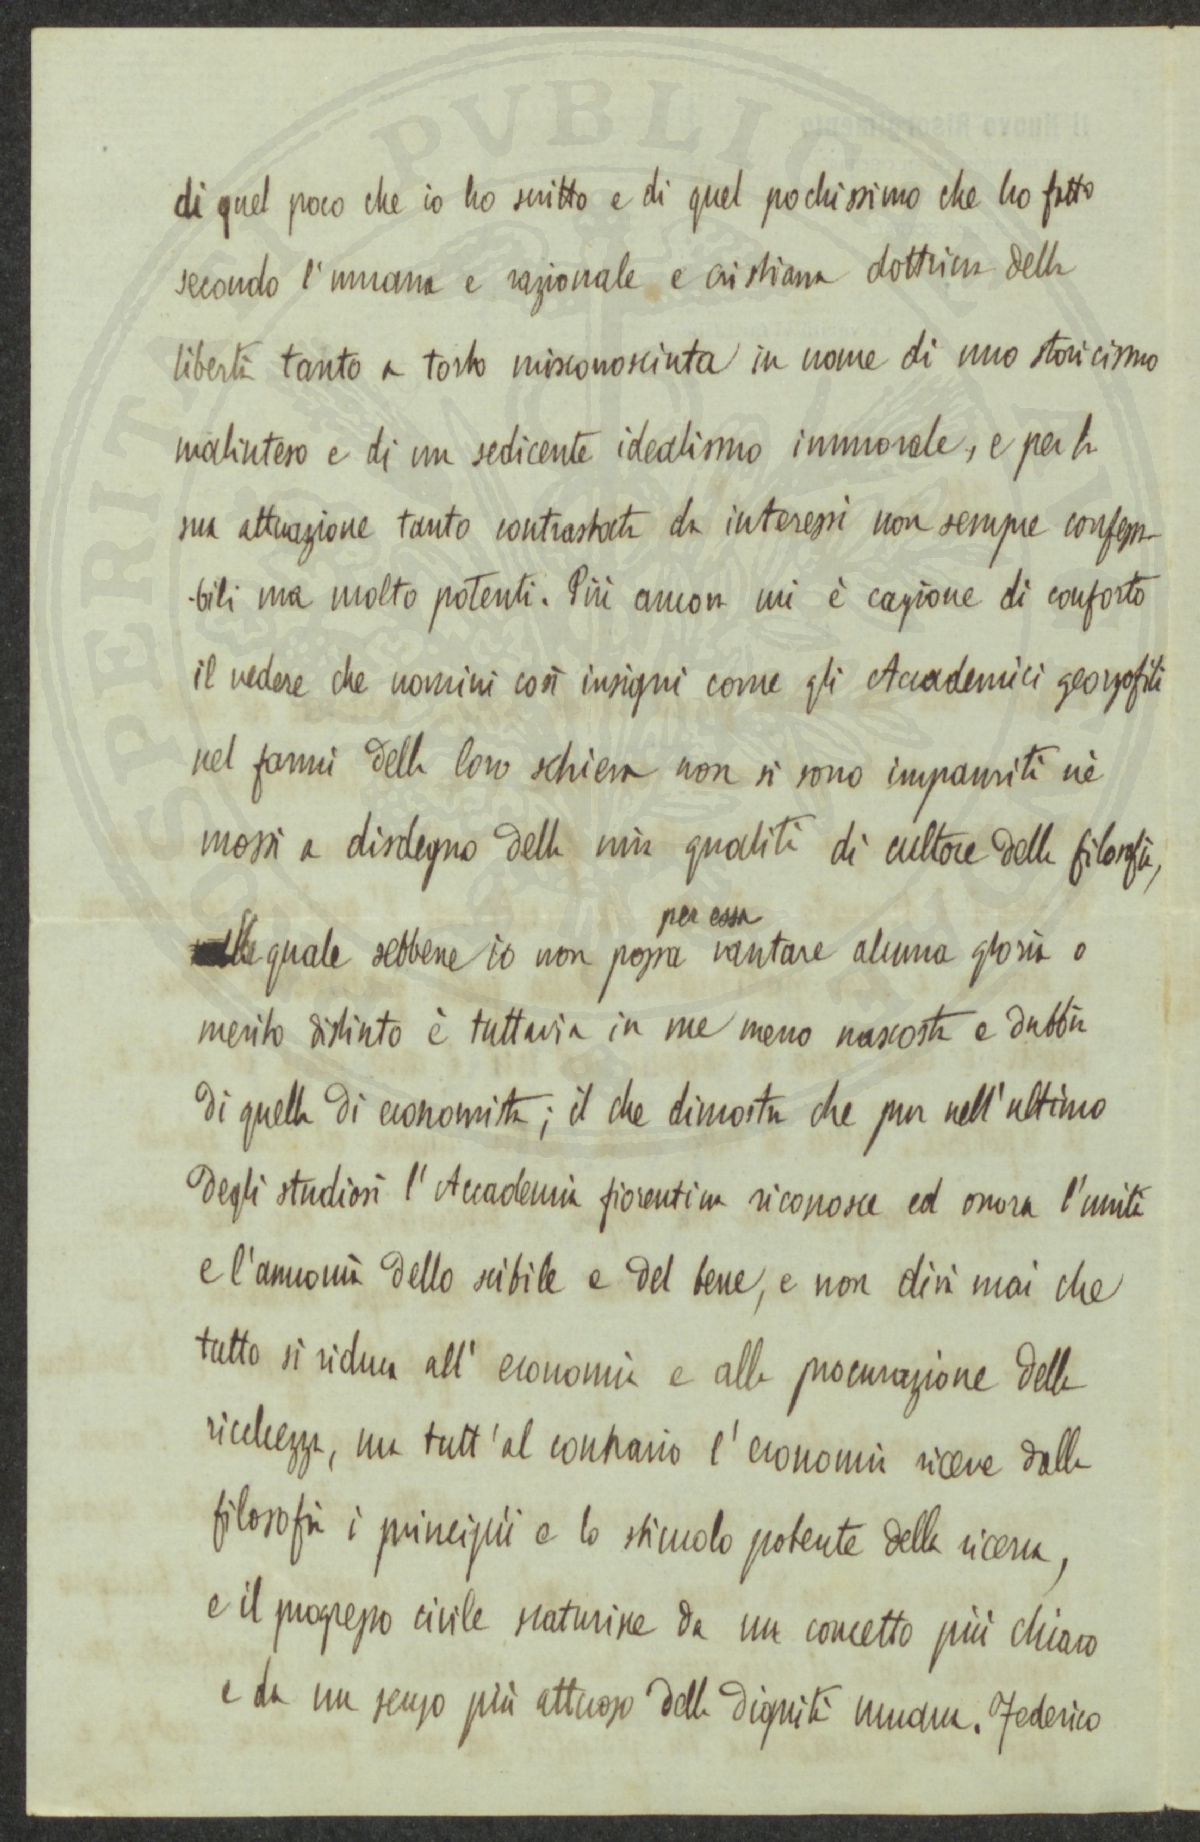 di quel poco che io ho scritto e di quel pochissimo che ho fatto
secondo l'umana e razionale e cristiana dottrina della
libertà tanto a torto misconosciuta in nome di uno storicismo
malinteso e di un sedicente idealismo immorale, e per la
sua attuazione tanto contrastata da interessi non sempre confessa-
-bili ma molto potenti. Più ancora mi è cagione di conforto
il vedere che uomini così insigni come gli Accademici georgofili
nel farmi della loro schiera non si sono impauriti nè
mossi a disdegno della mia qualità di cultore della filosofia,
per essa
quale sebbene io non possa vantare alcuna gloria o
merito distinto è tuttavia in me meno nascosta e dubbia
di quella di economista; il che dimostra che pur nell'ultimo
degli studiosi l'Accademia fiorentina riconosce ed onora l'unità
e l'armonia dello scibile e del bene, e non dirà mai che
tutto si riduca all'economia e alla procurazione della
ricchezza, ma tutt'al contrario l'economia riceve dalla
filosofia i principii e lo stimolo potente della ricerca,
e il progresso civile scaturisce da un concetto più chiaro
e da un senso più attuoso della dignità umana. Federico
PVBLIC
SPERITAS
Il Nuovo Risorgimento